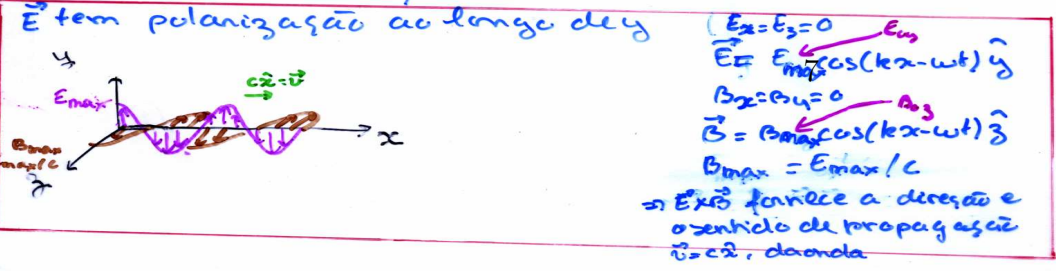 E⃗ tem polarização ao longo de y
y
E max
cx̂ = v⃗
x
Bmax
max/c
z
Ex = Ez = 0
Eoy
E⃗ = Emax cos(kx-wt) ŷ
Bx = By = 0
Boz
B⃗ = Bmax cos(kx-wt) ẑ
Bmax = Emax/c
⇒ E⃗xB⃗ fornece a direção e
o sentido de propagação
v⃗ = cx̂, da onda